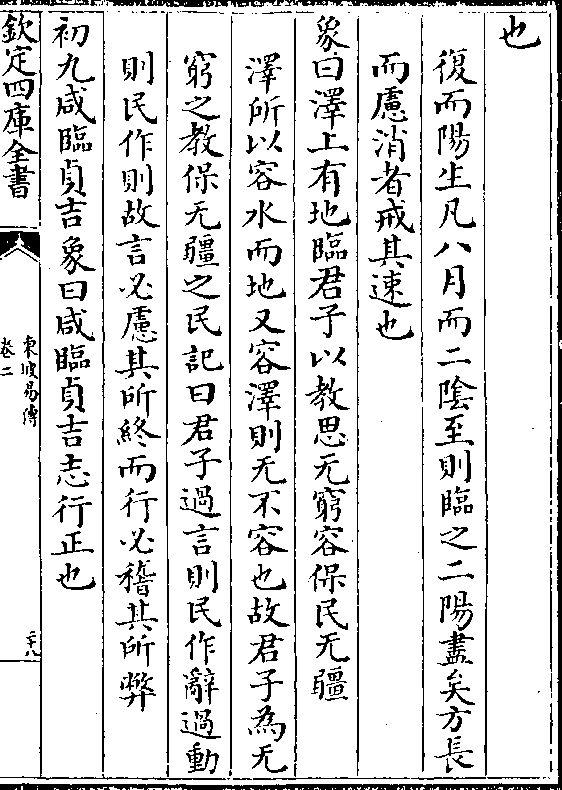 也
復而陽生凡八月而二隂至則臨之二陽盡矣方長
而慮消者戒其速也
象曰澤上有地臨君子以教思无窮容保民无疆
澤所以容水而地又容澤則无不容也故君子為无
窮之教保无疆之民記曰君子過言則民作辭過動
則民作則故言必慮其所終而行必稽其所弊
初九咸臨貞吉象曰咸臨貞吉志行正也
欽定四庫全書
東坡易傳
卷二
三十八